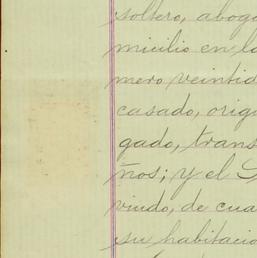 soltero, aboga
micilio en la
mero veintid
casado, orig
gado, trans
ños; y el
viudo, de cua
su habitacio